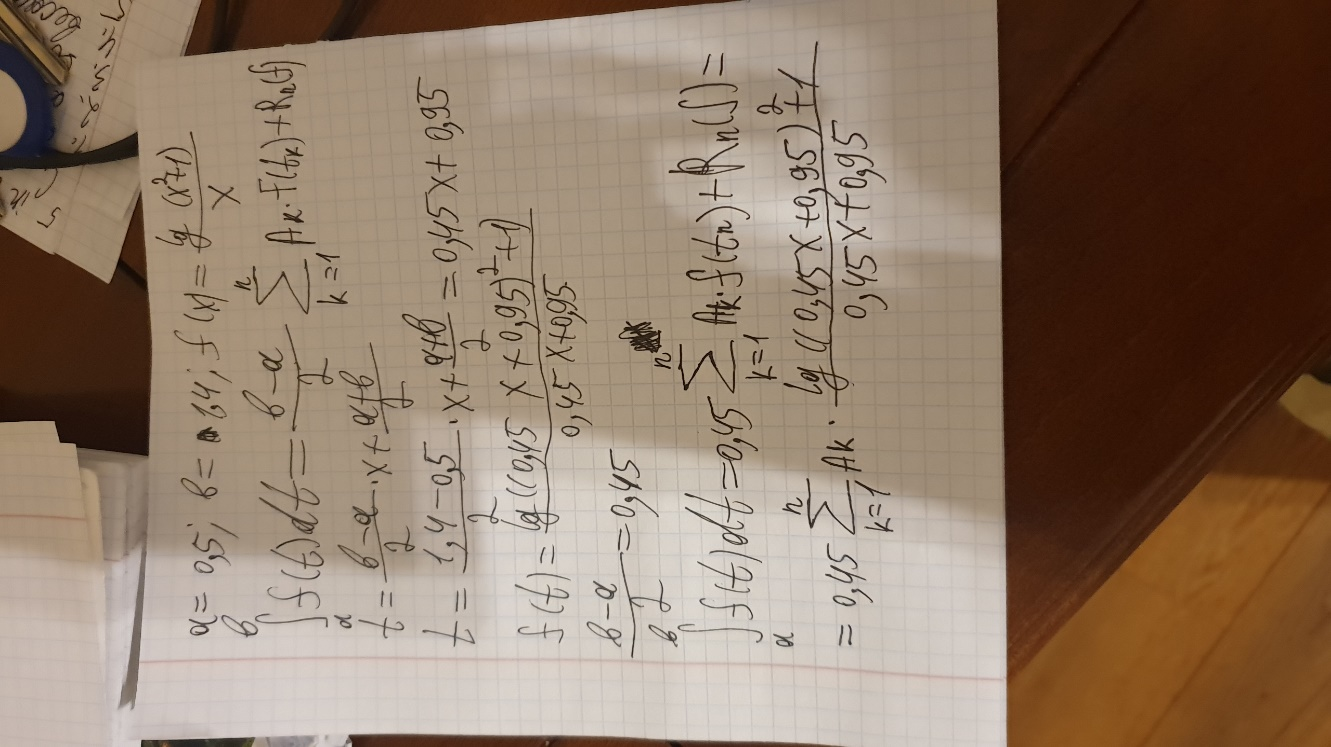 a = 0,5; b = 1,4; f(x) = lg(x²+1)/x
∫ₐᵇ f(t)dt = (b-a)/2 ∑ₖ₌₁ⁿ Aₖ·f(tₖ)+Rₙ(f)
t = (b-a)/2 · x + (a+b)/2
t = (1,4-0,5)/2 · x + (a+b)/2 = 0,45x + 0,95
f(t) = lg((0,45x+0,95)²+1)/(0,45x+0,95)
(b-a)/2 = 0,45
∫ₐᵇ f(t)dt = 0,45 ∑ₖ₌₁ⁿ Aₖ·f(tₖ)+Rₙ(f) =
= 0,45 ∑ₖ₌₁ⁿ Aₖ · lg((0,45x+0,95)²+1/(0,45x+0,95)